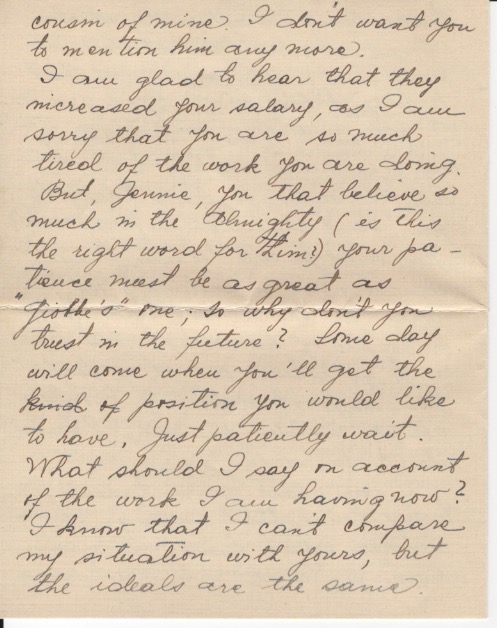 cousin of mine. I don't want you
to mention him any more.
I am glad to hear that they
increased your salary, as I am
sorry that you are so much
tired of the work you are doing.
But, Jennie, you that believe so
much in the Almighty (is this
the right word for Him?) your pa-
tience must be as great as
"Giobbe's" one; so why don't you
trust in the future? Some day
will come when you'll get the
kind of position you would like
to have. Just patiently wait.
What should I say on account
of the work I am having now?
I know that I can't compare
my situation with yours, but
the ideals are the same.